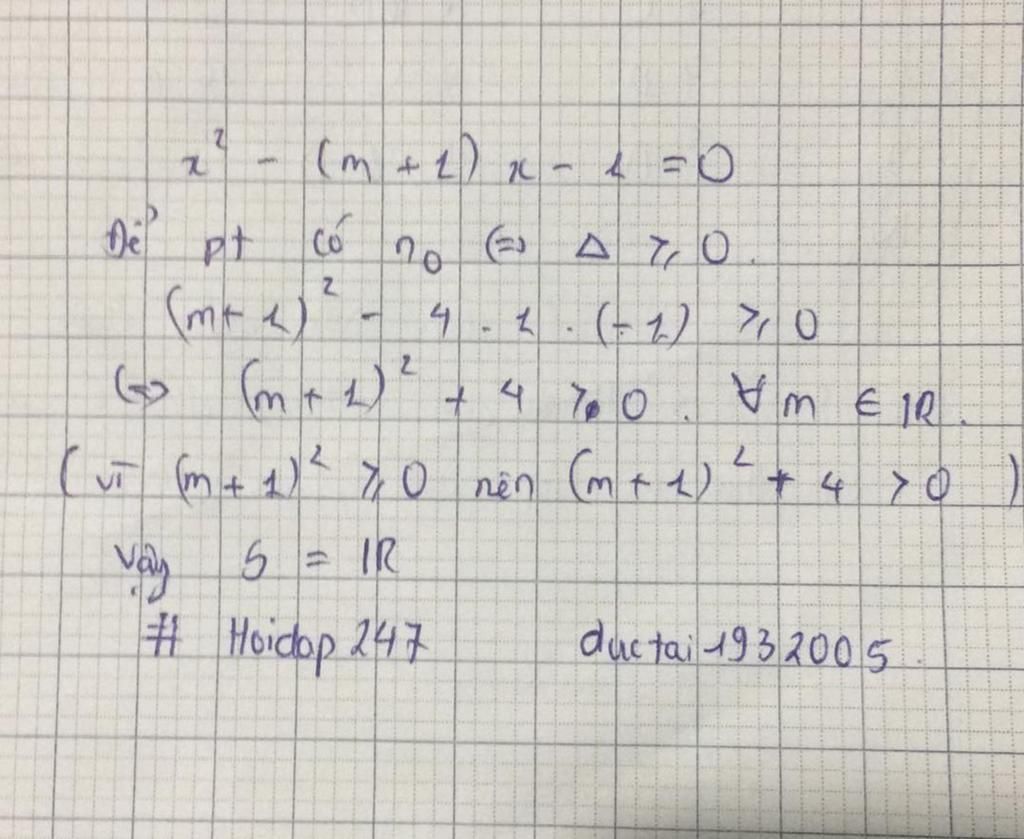 x² - (m + 1) x - 1 = 0
Để pt có n₀ (=) Δ ⩾ 0.
(m + 1)² - 4 . 1 . (-1) ⩾ 0
(=) (m + 1)² + 4 ⩾ 0. ∀ m ∈ IR.
( vì (m + 1)² ⩾ 0 nên (m + 1)² + 4 > 0 )
Vậy S = IR
# Hoidap 247 ductai 1932005.